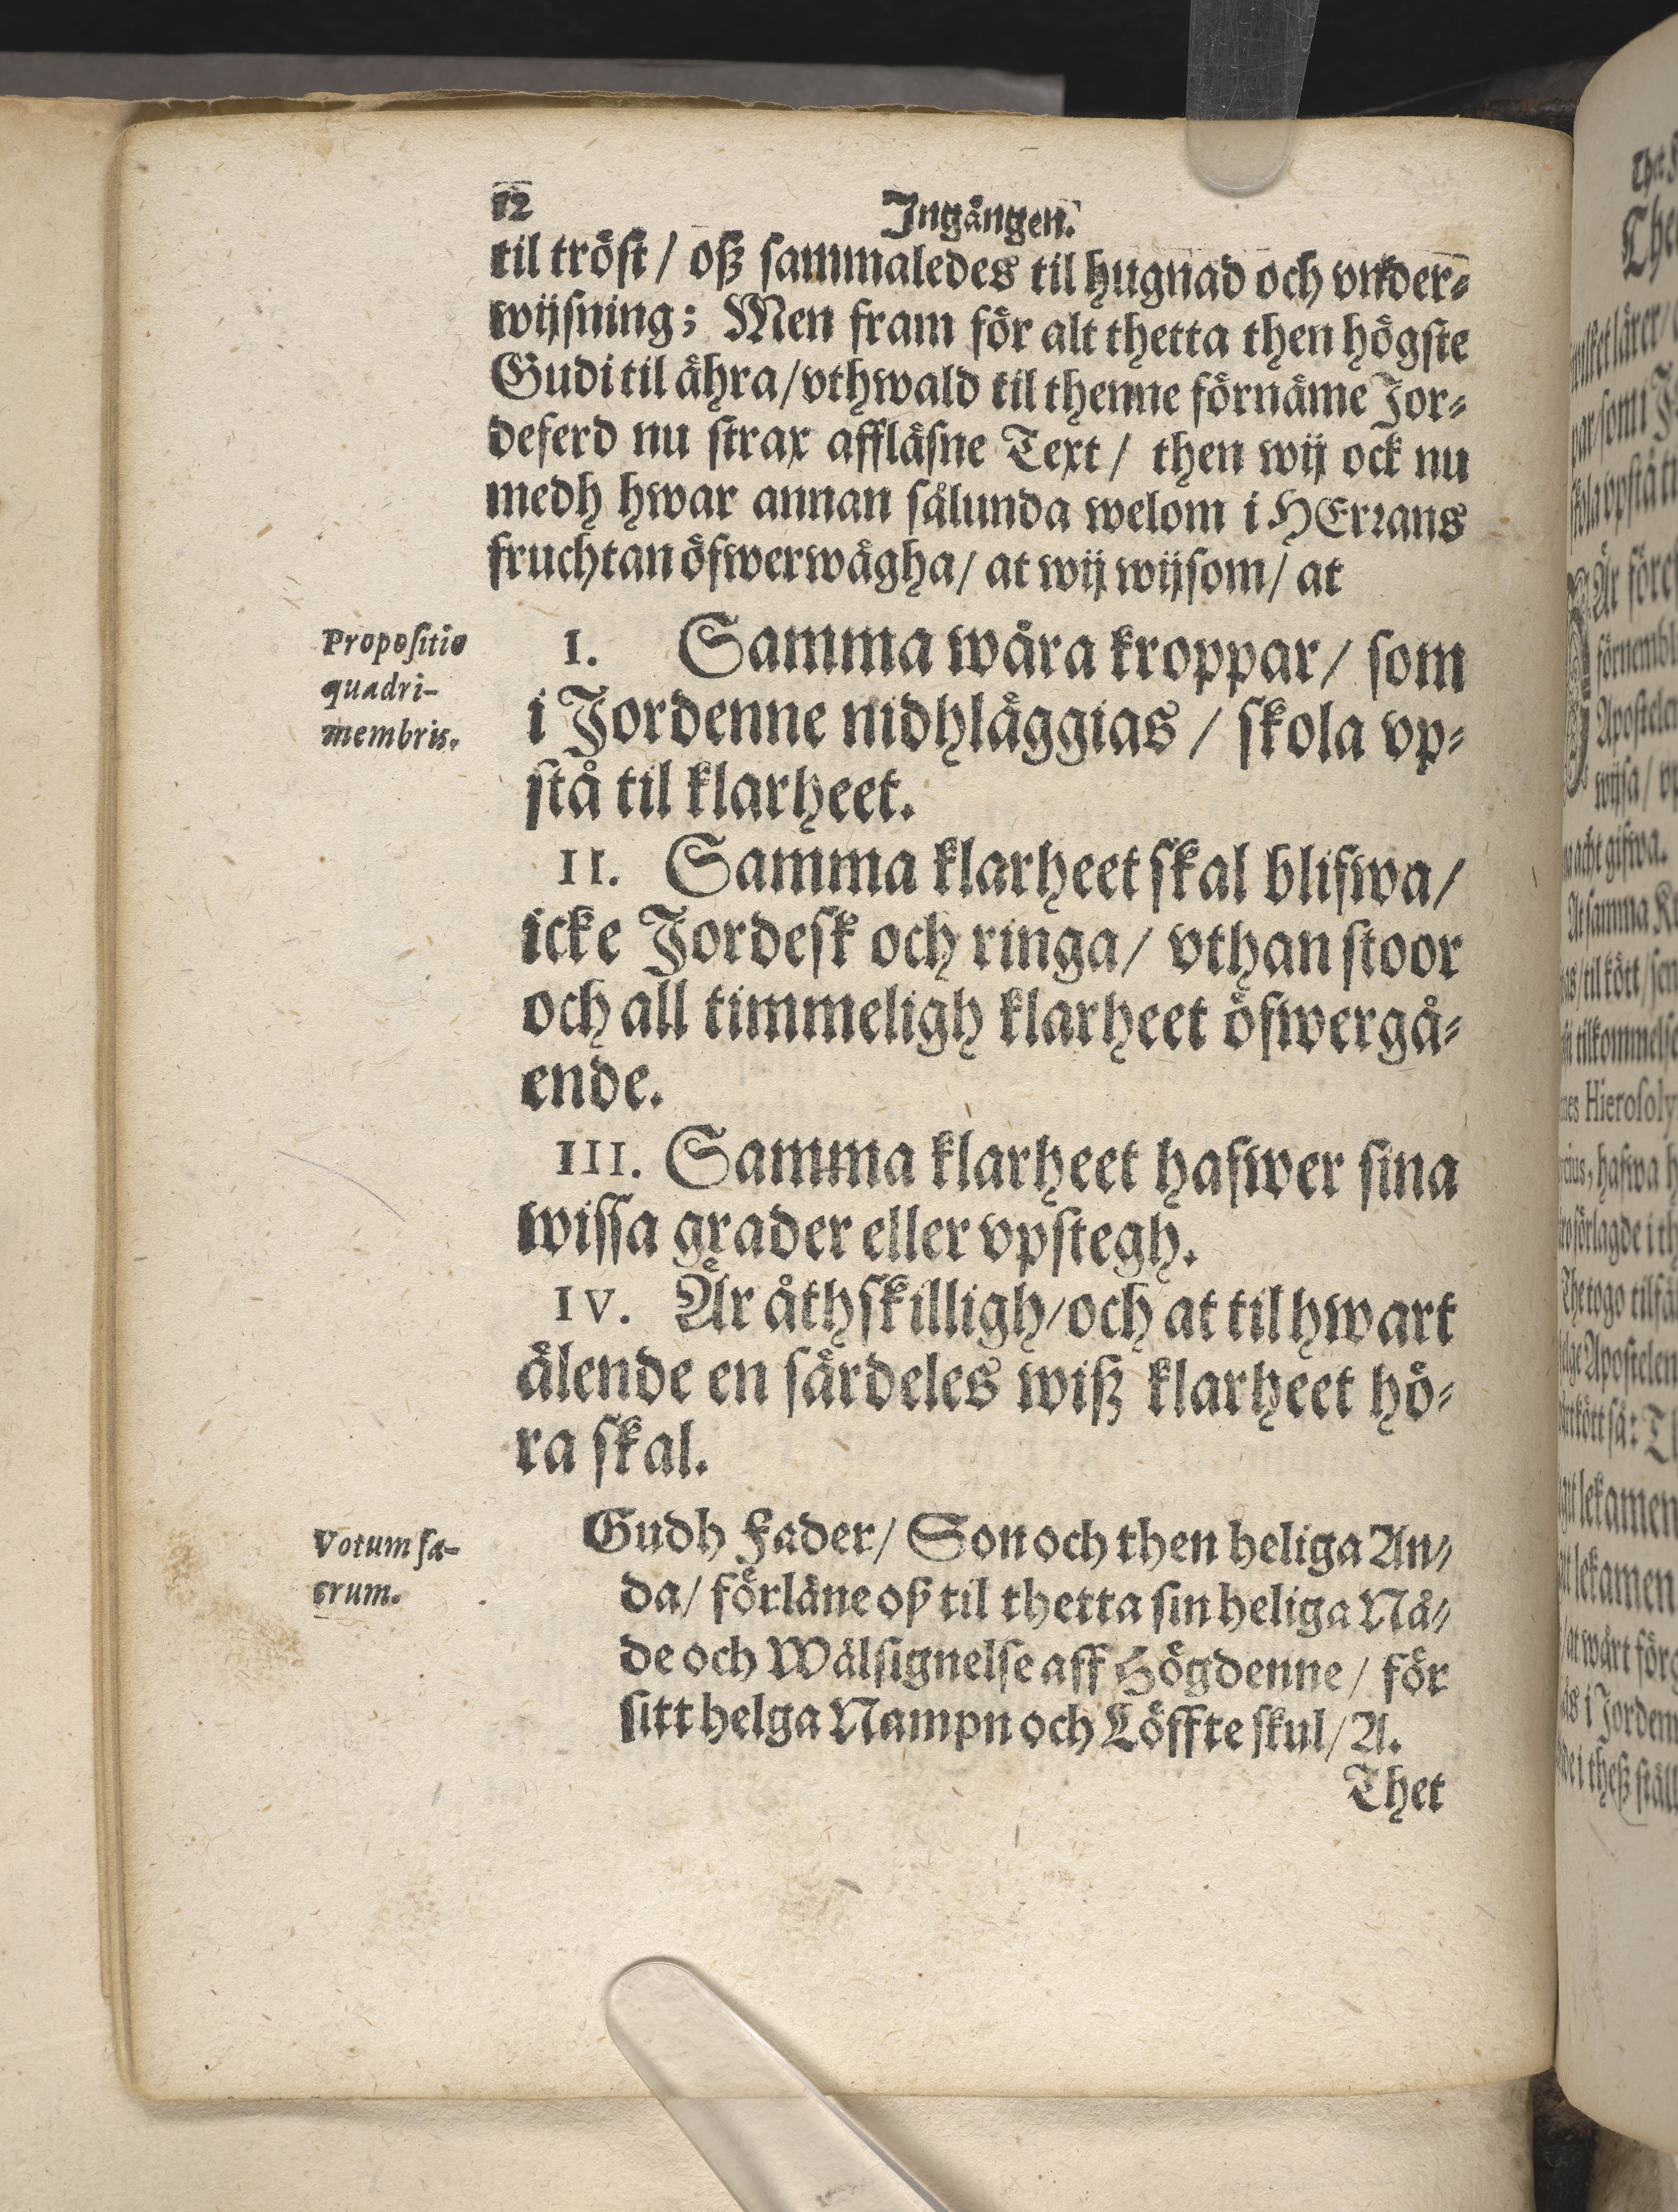 12
Ingången.
til tröst / oß sammaledes til hugnad och vnder-
wijsning; Men fram för alt thetta then högste
Gudi til ähra/vthwald til thenne förnäme Jor-
deferd nu strax affläsne Text / then wij ock nu
medh hwar annan sålunda welom i HErrans
fruchtan öfwerwägha/ at wij wijsom/ at
Propositio
quadri-
membris.
I. Samma wåra kroppar/ som
i Jordenne nidhläggias / skola vp-
stå til klarheet.
II. Samma klarheet skal blifwa/
icke Jordesk och ringa/ vthan stoor
och all timmeligh klarheet öfwergå-
ende.
III. Samma klarheet hafwer sina
wissa grader eller vpstegh.
IV. Är åthskilligh/och at til hwart
älende en särdeles wiß klarheet hö-
ra skal.
Votum sa-
crum.
Gudh Fader/ Son och then heliga An-
da/ förläne oß til thetta sin heliga Nå-
de och Wälsignelse aff Högdenne / för
sitt helga Nampn och Löffte skul/ A.
Thet